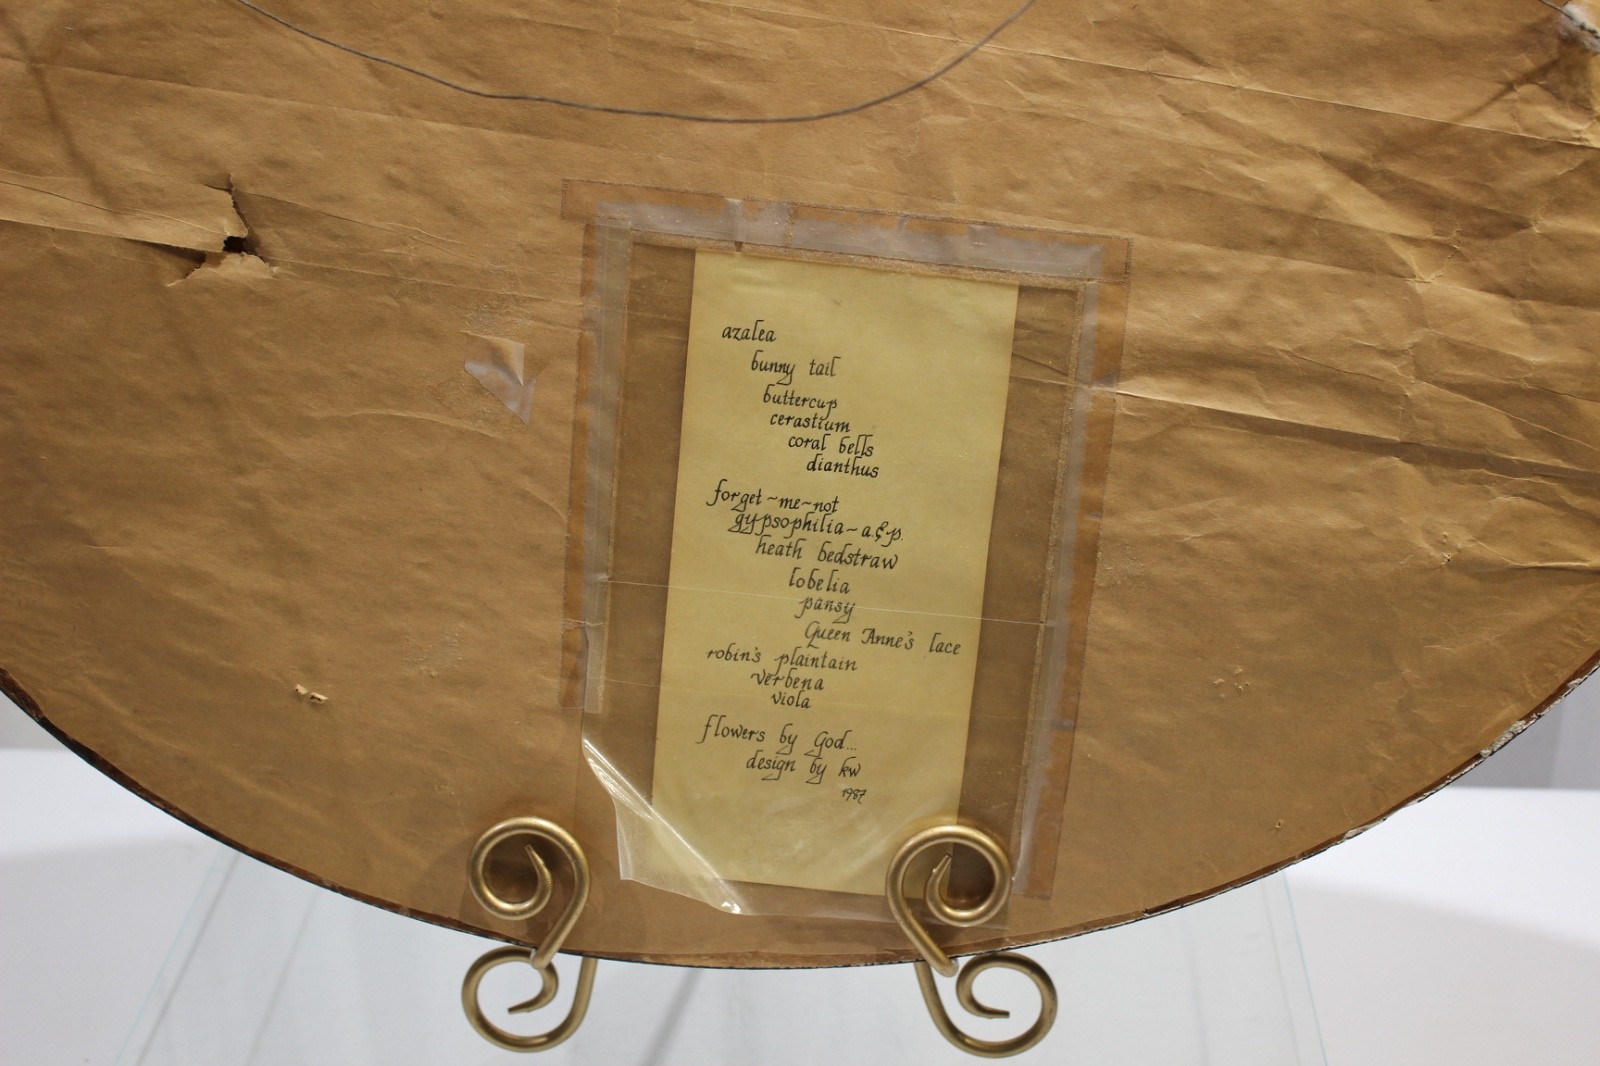 azalea
bunny tail
buttercup
cerastium
coral bells
dianthus
forget~me~not
gypsophilia~a.&p.
heath bedstraw
lobelia
pansy
Queen Anne's lace
robin's plaintain
verbena
viola
flowers by God...
design by kw
1987